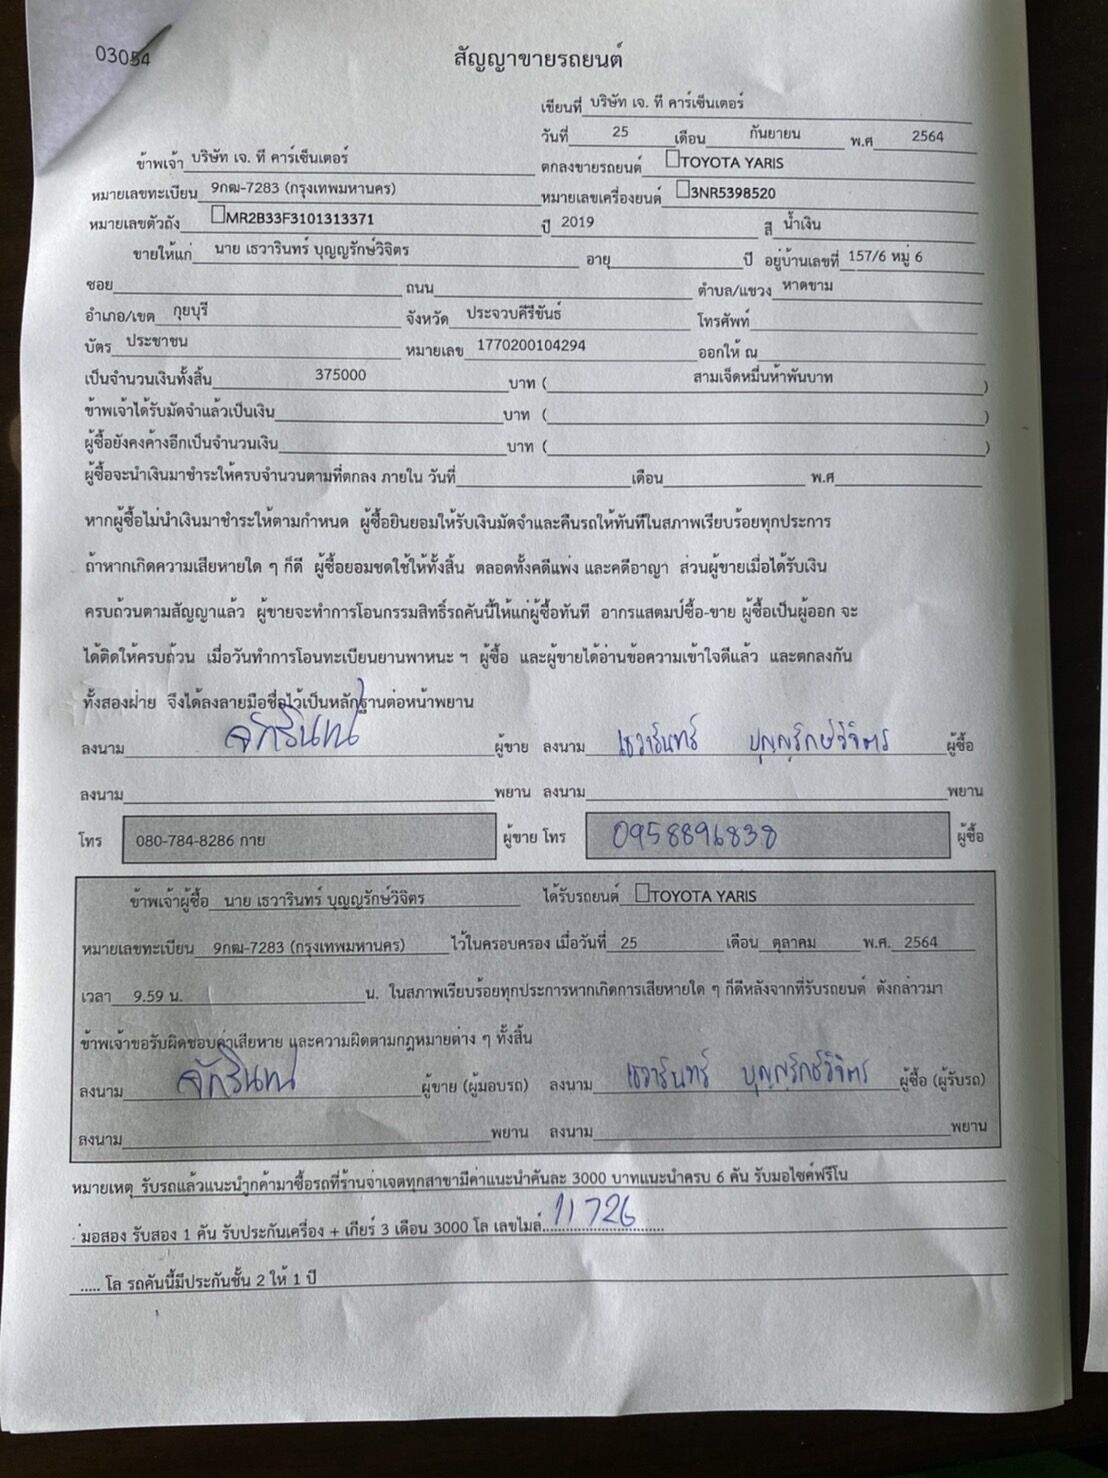 03054
สัญญาขายรถยนต์
เขียนที่ บริษัท เจ. ที คาร์เซ็นเตอร์
วันที่ 25 เดือน กันยายน พ.ศ 2564
ข้าพเจ้า บริษัท เจ. ที คาร์เซ็นเตอร์ ตกลงขายรถยนต์ TOYOTA YARIS
หมายเลขทะเบียน 9กฒ-7283 (กรุงเทพมหานคร) หมายเลขเครื่องยนต์ 3NR5398520
หมายเลขตัวถัง MR2B33F3101313371 ปี 2019 สี น้ำเงิน
ขายให้แก่ นาย เธวารินทร์ บุญญรักษ์วิจิตร อายุ ปี อยู่บ้านเลขที่ 157/6 หมู่ 6
ซอย ถนน ตำบล/แขวง หาดขาม
อำเภอ/เขต กุยบุรี จังหวัด ประจวบคีรีขันธ์ โทรศัพท์
บัตร ประชาชน หมายเลข 1770200104294 ออกให้ ณ
เป็นจำนวนเงินทั้งสิ้น 375000 บาท ( สามเจ็ดหมื่นห้าพันบาท )
ข้าพเจ้าได้รับมัดจำแล้วเป็นเงิน บาท ( )
ผู้ซื้อยังคงค้างอีกเป็นจำนวนเงิน บาท ( )
ผู้ซื้อจะนำเงินมาชำระให้ครบจำนวนตามที่ตกลง ภายใน วันที่ เดือน พ.ศ
หากผู้ซื้อไม่นำเงินมาชำระให้ตามกำหนด ผู้ซื้อยินยอมให้รับเงินมัดจำและคืนรถให้ทันทีในสภาพเรียบร้อยทุกประการ
ถ้าหากเกิดความเสียหายใด ๆ ก็ดี ผู้ซื้อยอมชดใช้ให้ทั้งสิ้น ตลอดทั้งคดีแพ่ง และคดีอาญา ส่วนผู้ขายเมื่อได้รับเงิน
ครบถ้วนตามสัญญาแล้ว ผู้ขายจะทำการโอนกรรมสิทธิ์รถคันนี้ให้แก่ผู้ซื้อทันที อากรแสตมป์ซื้อ-ขาย ผู้ซื้อเป็นผู้ออก จะ
ได้ติดให้ครบถ้วน เมื่อวันทำการโอนทะเบียนยานพาหนะ ฯ ผู้ซื้อ และผู้ขายได้อ่านข้อความเข้าใจดีแล้ว และตกลงกัน
ทั้งสองฝ่าย จึงได้ลงลายมือชื่อไว้เป็นหลักฐานต่อหน้าพยาน
ลงนาม จักรินทน์ ผู้ขาย ลงนาม เธวารินทร์ บุญญรักษ์วิจิตร ผู้ซื้อ
ลงนาม พยาน ลงนาม พยาน
โทร 080-784-8286 กาย ผู้ขาย โทร 0958896838 ผู้ซื้อ
ข้าพเจ้าผู้ซื้อ นาย เธวารินทร์ บุญญรักษ์วิจิตร ได้รับรถยนต์ TOYOTA YARIS
หมายเลขทะเบียน 9กฒ-7283 (กรุงเทพมหานคร) ไว้ในครอบครอง เมื่อวันที่ 25 เดือน ตุลาคม พ.ศ. 2564
เวลา 9.59 น. น. ในสภาพเรียบร้อยทุกประการหากเกิดการเสียหายใด ๆ ก็ดีหลังจากที่รับรถยนต์ ดังกล่าวมา
ข้าพเจ้าขอรับผิดชอบค่าเสียหาย และความผิดตามกฎหมายต่าง ๆ ทั้งสิ้น
ลงนาม จักรินทน์ ผู้ขาย (ผู้มอบรถ) ลงนาม เธวารินทร์ บุญญรักษ์วิจิตร ผู้ซื้อ (ผู้รับรถ)
ลงนาม พยาน ลงนาม พยาน
หมายเหตุ รับรถแล้วแนะนำูกค้ามาซื้อรถที่ร้านจ่าเจตทุกสาขามีค่าแนะนำคันละ 3000 บาทแนะนำครบ 6 คัน รับมอไซค์ฟรีโน
มือสอง รับสอง 1 คัน รับประกันเครื่อง + เกียร์ 3 เดือน 3000 โล เลขไมล์ 11726
..... โล รถคันนี้มีประกันชั้น 2 ให้ 1 ปี